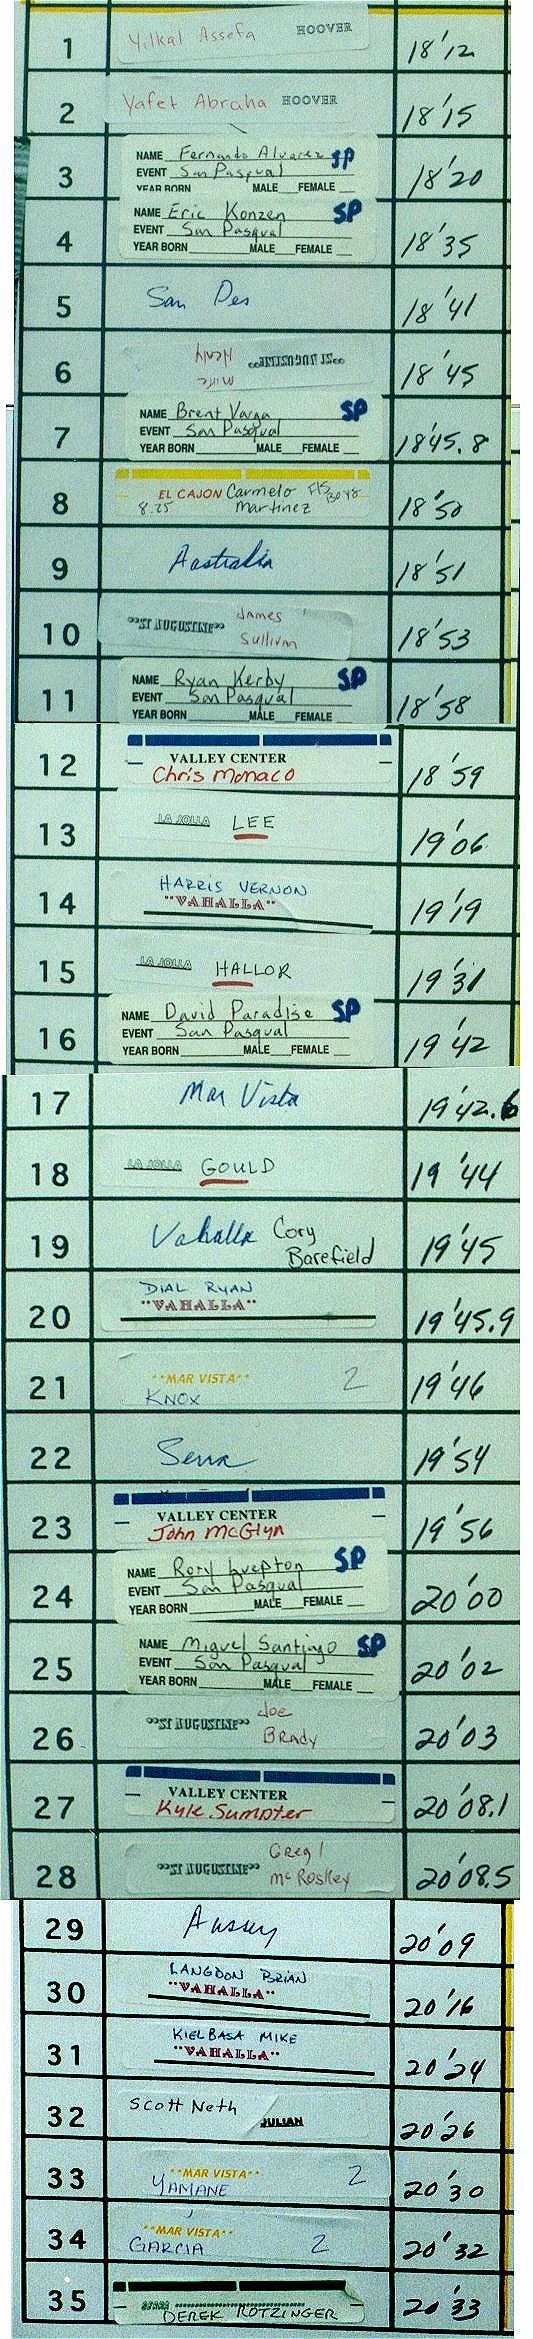 1 Yilkal Assefa HOOVER 18'12
2 Yafet Abraha HOOVER 18'15
NAME Fernando Alvarez SP
3 EVENT San Pasqual 18'20
YEAR BORN MALE FEMALE
NAME Eric Konzen SP
4 EVENT San Pasqual 18'35
YEAR BORN MALE FEMALE
5 San Des 18'41
6 Mike Henly "ST AUGUSTINE" 18'45
NAME Brent Varga SP
7 EVENT San Pasqual 18'45.8
YEAR BORN MALE FEMALE
8 EL CAJON Carmelo F/S Boys 18'50
8.25 Martinez
9 Australia 18'51
10 "ST AUGUSTINE" James 18'53
Sullivan
NAME Ryan Kerby SP
11 EVENT San Pasqual 18'58
YEAR BORN MALE FEMALE
12 VALLEY CENTER 18'59
Chris Monaco
13 LA JOLLA LEE 19'06
HARRIS VERNON
14 "VAHALLA" 19'19
15 LA JOLLA HALLOR 19'31
NAME David Paradise SP
16 EVENT San Pasqual 19'42
YEAR BORN MALE FEMALE
17 Mar Vista 19'42.6
18 LA JOLLA GOULD 19'44
19 Vahalla Cory 19'45
Barefield
DIAL RYAN
20 "VAHALLA" 19'45.9
21 "MAR VISTA" 2 19'46
KNOX
22 Serra 19'54
23 VALLEY CENTER 19'56
John McGlyn
NAME Rory Luepton SP
24 EVENT San Pasqual 20'00
YEAR BORN MALE FEMALE
NAME Miguel Santiago SP
25 EVENT San Pasqual 20'02
YEAR BORN MALE FEMALE
26 "ST AUGUSTINE" Joe 20'03
Brady
27 VALLEY CENTER 20'08.1
Kyle Sumpter
28 "ST AUGUSTINE" Greg 20'08.5
McRoskey
29 Aussey 20'09
LANGDON BRIAN
30 "VAHALLA" 20'16
KIELBASA MIKE
31 "VAHALLA" 20'24
32 Scott Neth JULIAN 20'26
33 "MAR VISTA" 2 20'30
YAMANE
34 "MAR VISTA" 2 20'32
GARCIA
35 SERRA 20'33
DEREK ROTZINGER